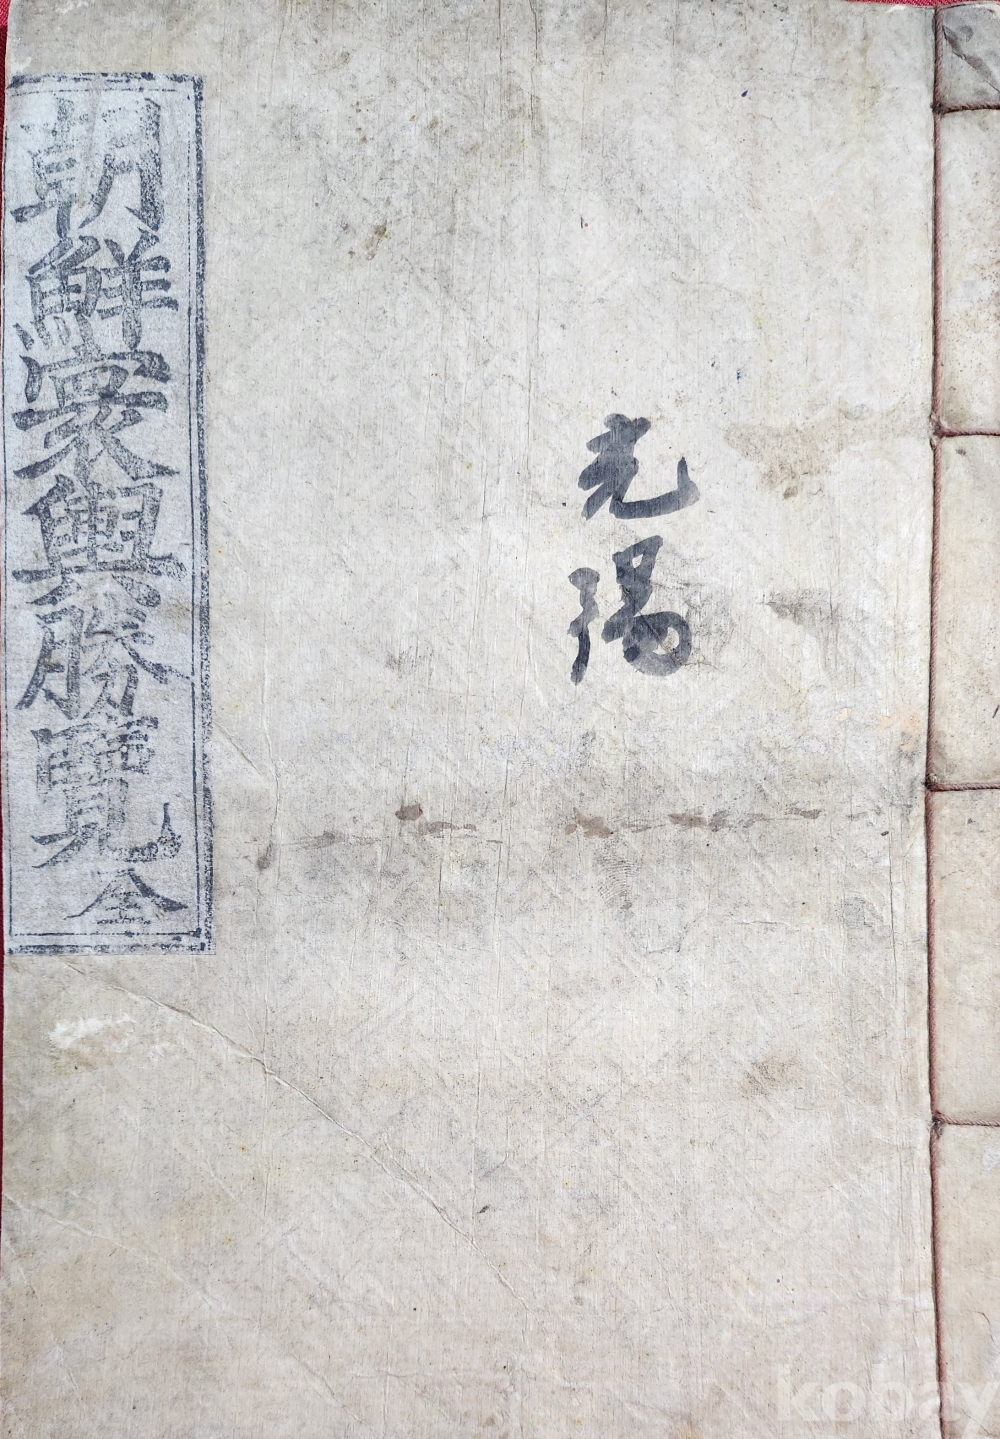 光陽
朝鮮寰輿勝覽 全
kobay